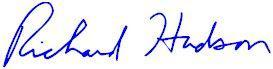 Richard Hudson